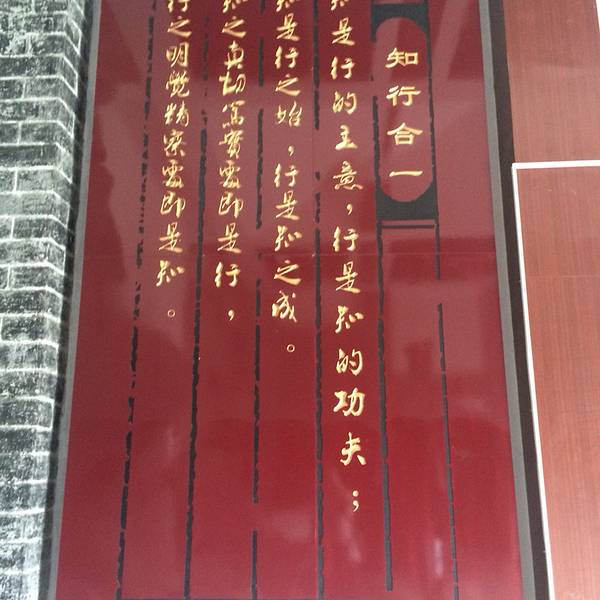 知行合一
知是行的主意，行是知的功夫；
知是行之始，行是知之成。
知之真切篤實處即是行，
行之明覺精察處即是知。